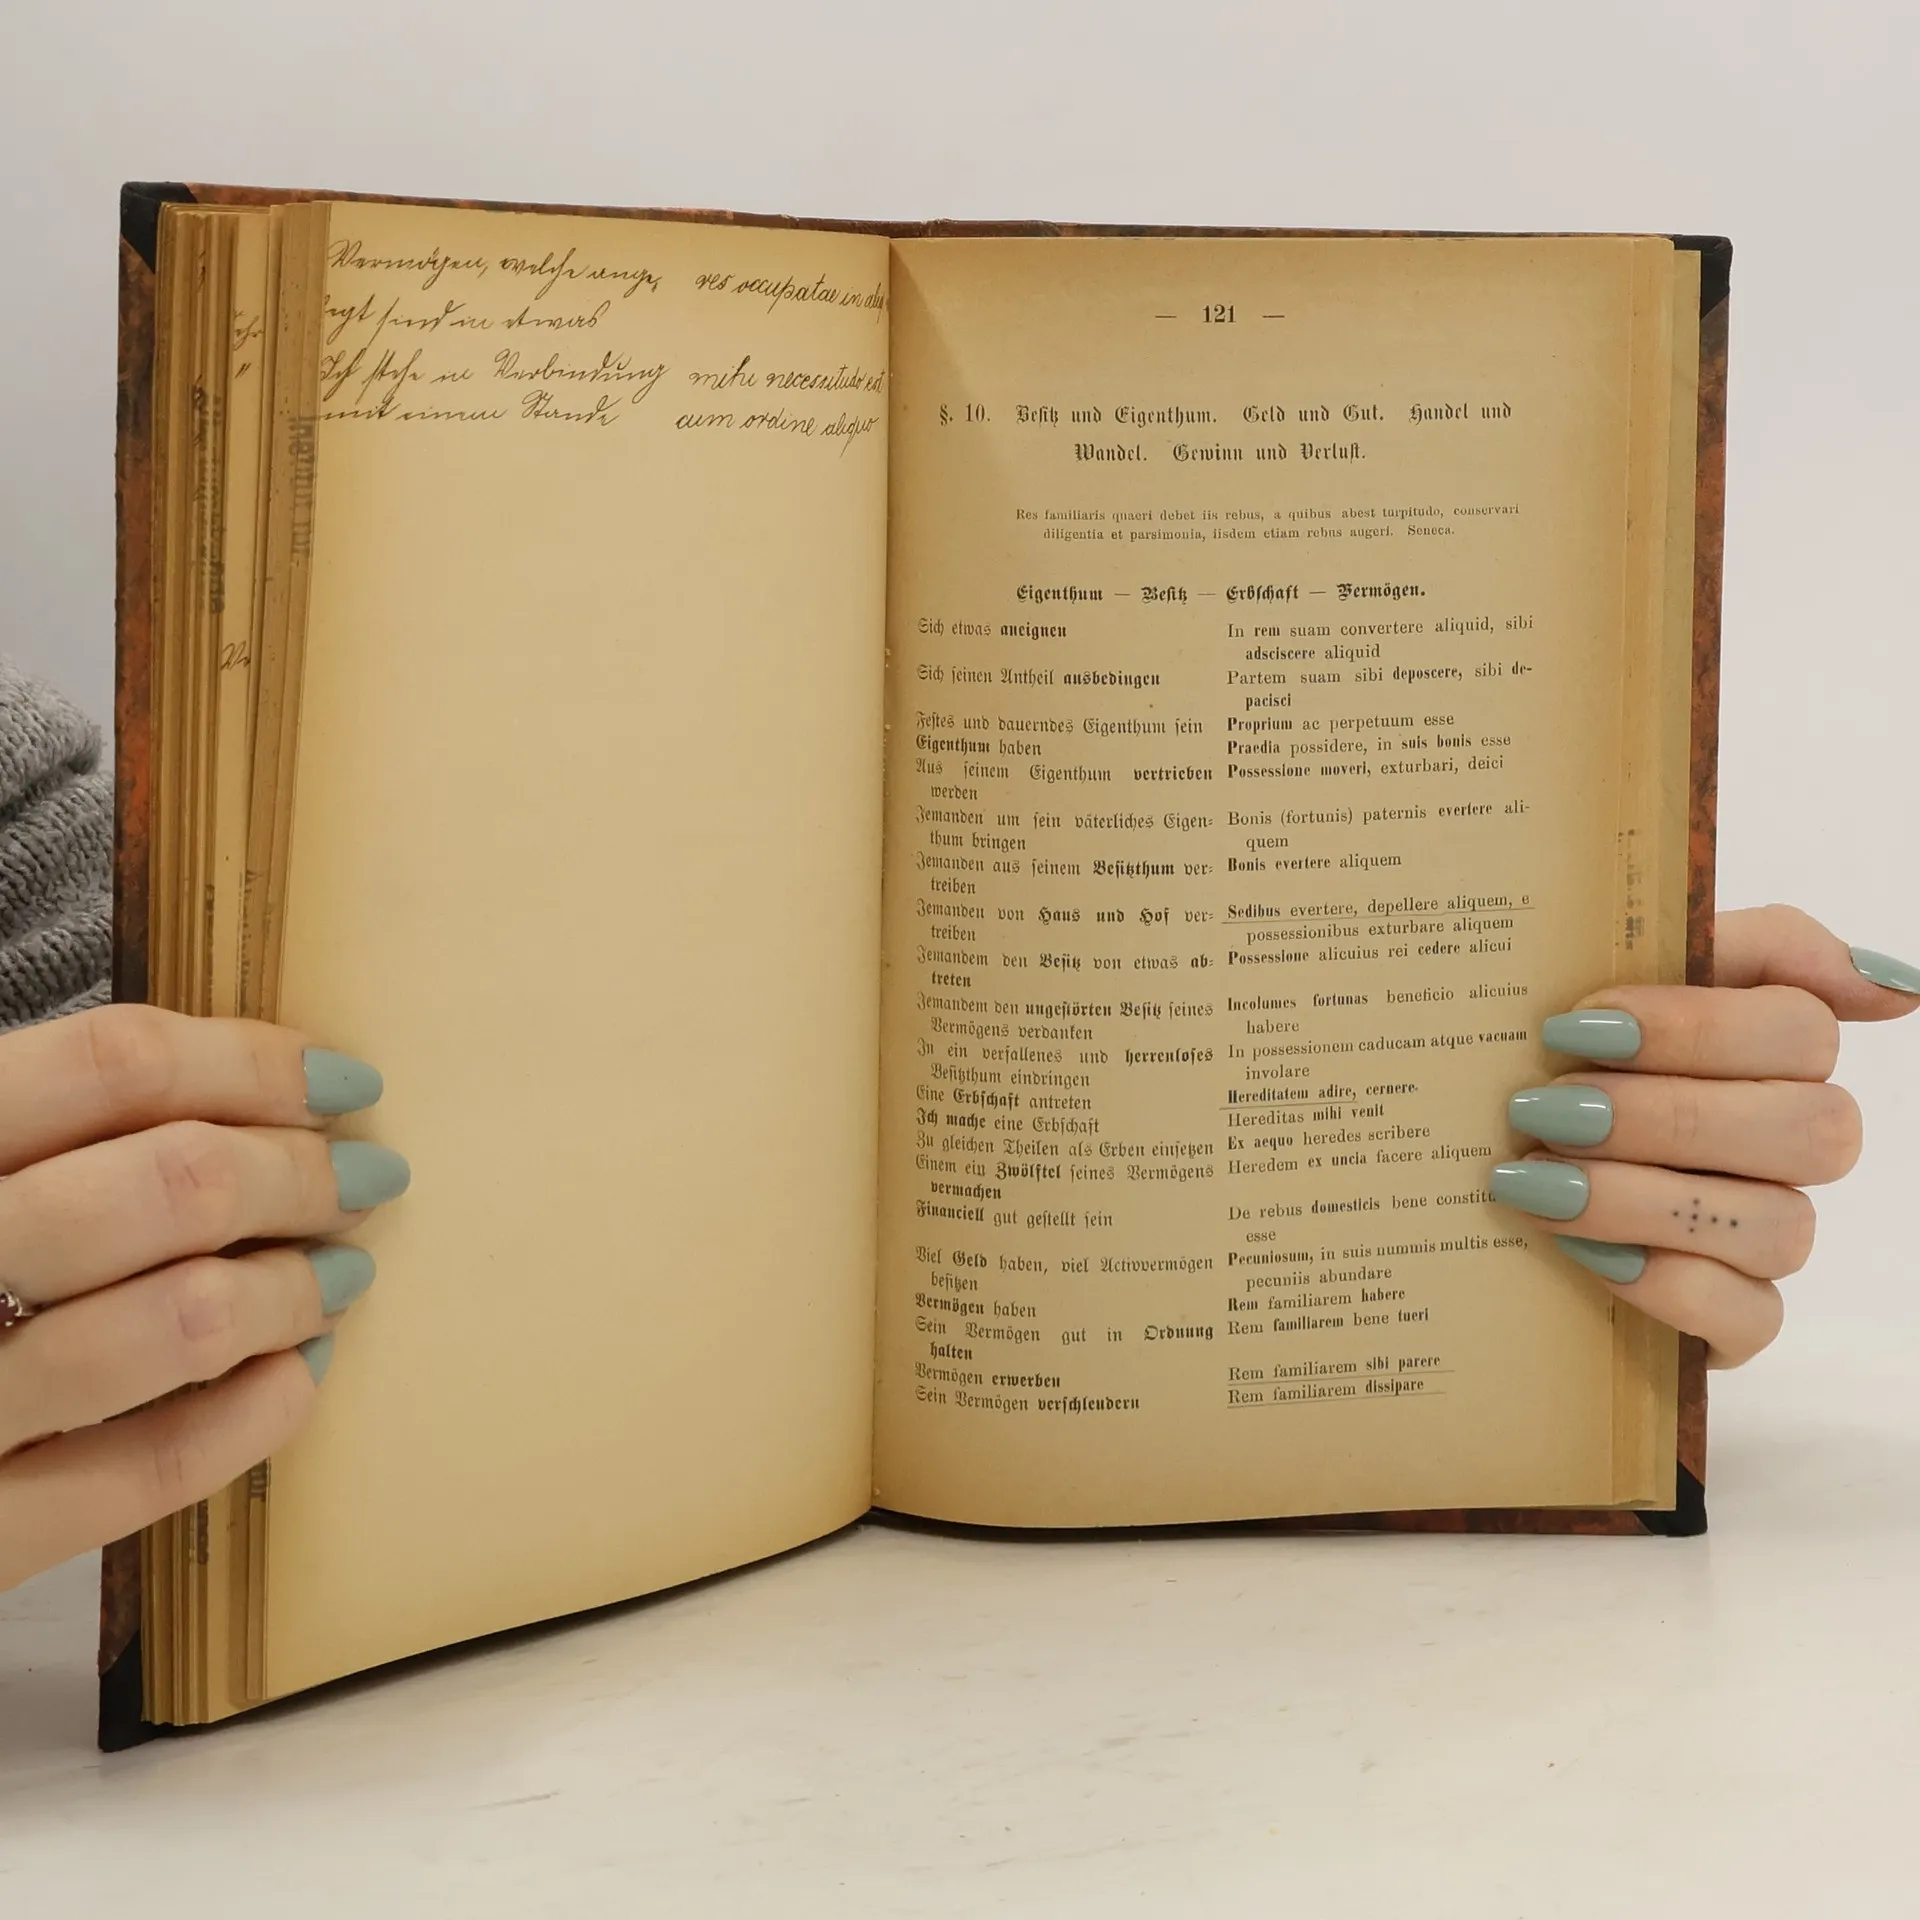 Vermögen, welche ange- res occupatae in aliq
legt sind in etwas
Ich stehe in Verbindung mihi necessitudo est
mit einem Stande cum ordine aliquo
— 121 —
§. 10. Besitz und Eigenthum. Geld und Gut. Handel und
Wandel. Gewinn und Verlust.
Res familiaris quaeri debet iis rebus, a quibus abest turpitudo, conservari
diligentia et parsimonia, iisdem etiam rebus augeri. Seneca.
Eigenthum — Besitz — Erbschaft — Vermögen.
Sich etwas aneignen
In rem suam convertere aliquid, sibi
adsciscere aliquid
Sich seinen Antheil ausbedingen
Partem suam sibi deposcere, sibi de-
pacisci
Festes und dauerndes Eigenthum sein
Proprium ac perpetuum esse
Eigenthum haben
Praedia possidere, in suis bonis esse
Aus seinem Eigenthum vertrieben
werden
Possessione moveri, exturbari, deici
Jemanden um sein väterliches Eigen-
thum bringen
Bonis (fortunis) paternis evertere ali-
quem
Jemanden aus seinem Besitzthum ver-
treiben
Bonis evertere aliquem
Jemanden von Haus und Hof ver-
treiben
Sedibus evertere, depellere aliquem, e
possessionibus exturbare aliquem
Jemandem den Besitz von etwas ab-
treten
Possessione alicuius rei cedere alicui
Jemandem den ungestörten Besitz seines
Vermögens verdanken
Incolumes fortunas beneficio alicuius
habere
In ein verfallenes und herrenloses
Besitzthum eindringen
In possessionem caducam atque vacuam
involare
Eine Erbschaft antreten
Hereditatem adire, cernere
Ich mache eine Erbschaft
Hereditas mihi venit
Zu gleichen Theilen als Erben einsetzen
Ex aequo heredes scribere
Einem ein Zwölftel seines Vermögens
vermachen
Heredem ex uncia facere aliquem
Financiell gut gestellt sein
De rebus domesticis bene constitu
esse
Viel Geld haben, viel Activvermögen
besitzen
Pecuniosum, in suis nummis multis esse,
pecuniis abundare
Vermögen haben
Rem familiarem habere
Sein Vermögen gut in Ordnung
halten
Rem familiarem bene tueri
Vermögen erwerben
Rem familiarem sibi parere
Sein Vermögen verschleudern
Rem familiarem dissipare